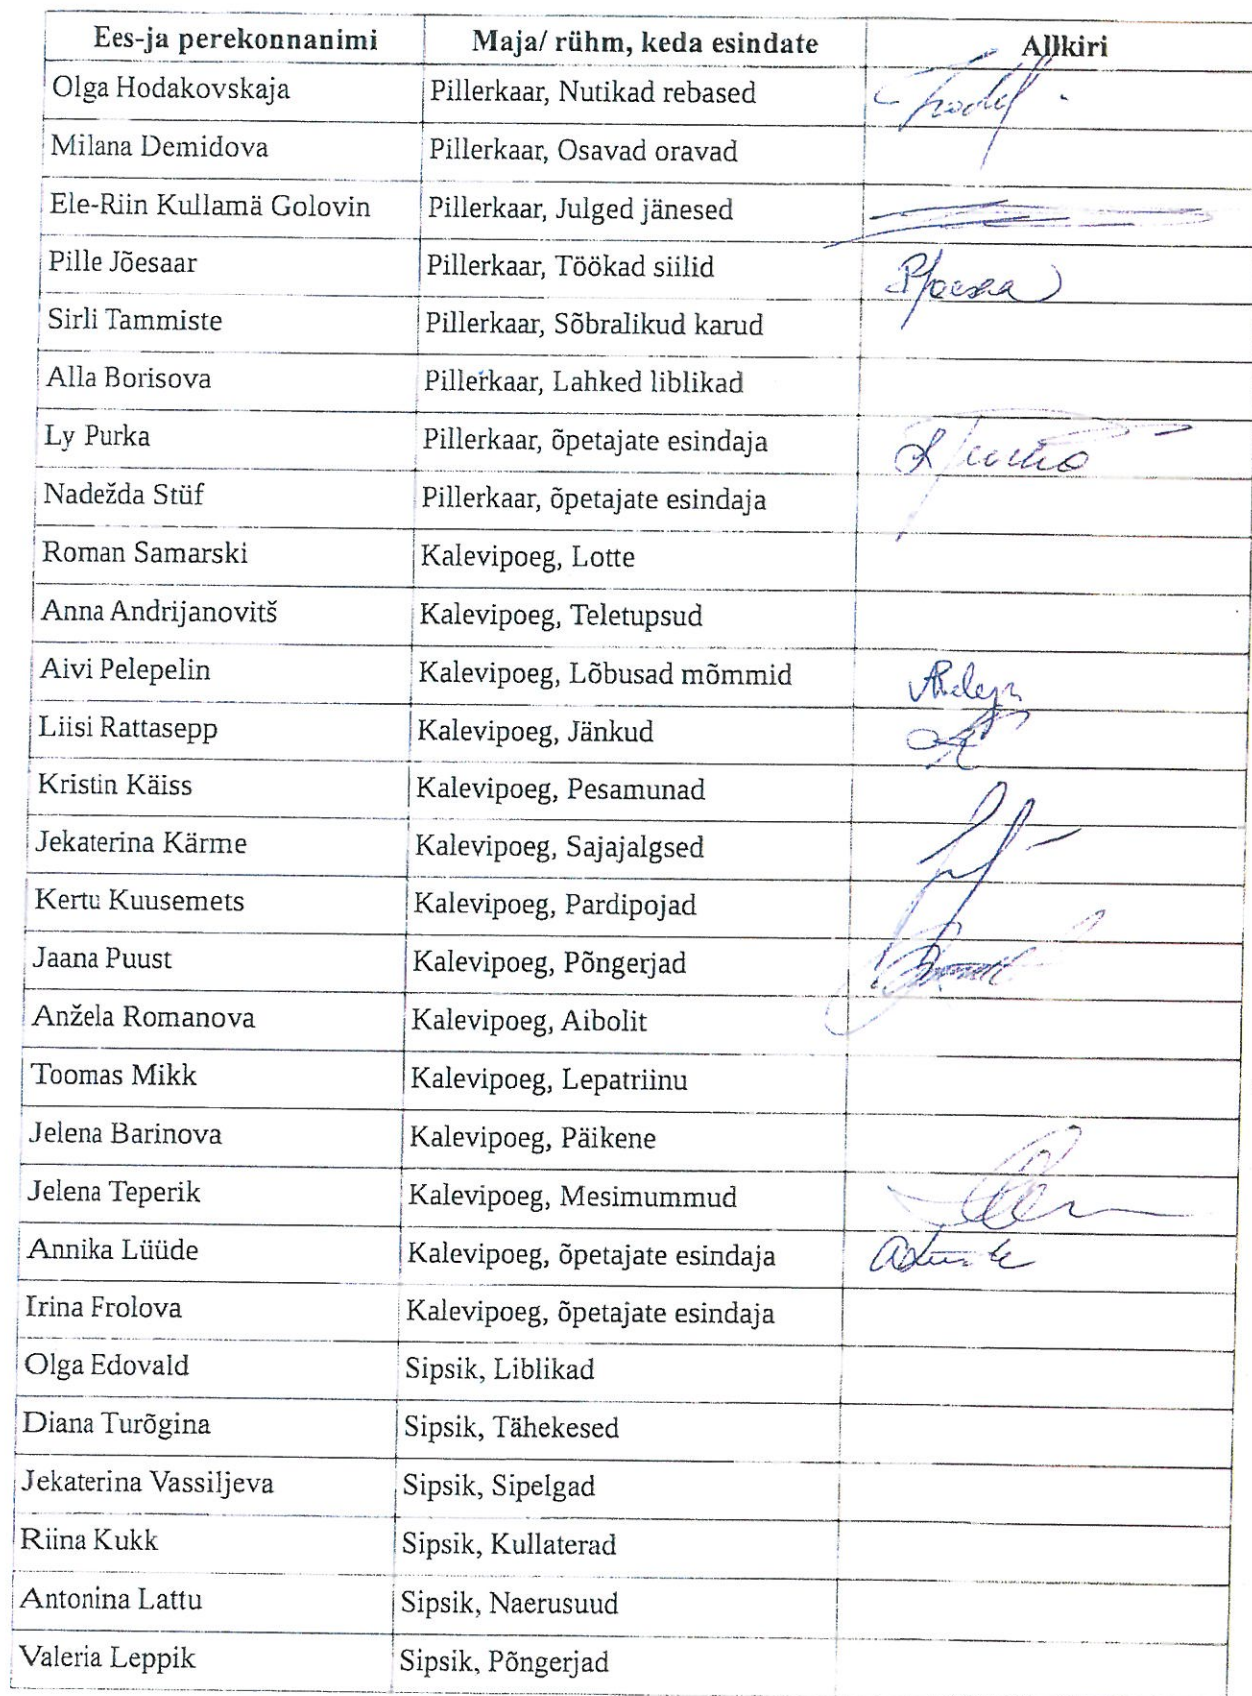 Ees-ja perekonnanimi Maja/ rühm, keda esindate Allkiri
Olga Hodakovskaja Pillerkaar, Nutikad rebased
Milana Demidova Pillerkaar, Osavad oravad
Ele-Riin Kullamä Golovin Pillerkaar, Julged jänesed
Pille Jõesaar Pillerkaar, Töökad siilid
Sirli Tammiste Pillerkaar, Sõbralikud karud
Alla Borisova Pillerkaar, Lahked liblikad
Ly Purka Pillerkaar, õpetajate esindaja
Nadežda Stüf Pillerkaar, õpetajate esindaja
Roman Samarski Kalevipoeg, Lotte
Anna Andrijanovitš Kalevipoeg, Teletupsud
Aivi Pelepelin Kalevipoeg, Lõbusad mõmmid
Liisi Rattasepp Kalevipoeg, Jänkud
Kristin Käiss Kalevipoeg, Pesamunad
Jekaterina Kärme Kalevipoeg, Sajajalgsed
Kertu Kuusemets Kalevipoeg, Pardipojad
Jaana Puust Kalevipoeg, Põngerjad
Anžela Romanova Kalevipoeg, Aibolit
Toomas Mikk Kalevipoeg, Lepatriinu
Jelena Barinova Kalevipoeg, Päikene
Jelena Teperik Kalevipoeg, Mesimummud
Annika Lüüde Kalevipoeg, õpetajate esindaja
Irina Frolova Kalevipoeg, õpetajate esindaja
Olga Edovald Sipsik, Liblikad
Diana Turõgina Sipsik, Tähekesed
Jekaterina Vassiljeva Sipsik, Sipelgad
Riina Kukk Sipsik, Kullaterad
Antonina Lattu Sipsik, Naerusuud
Valeria Leppik Sipsik, Põngerjad